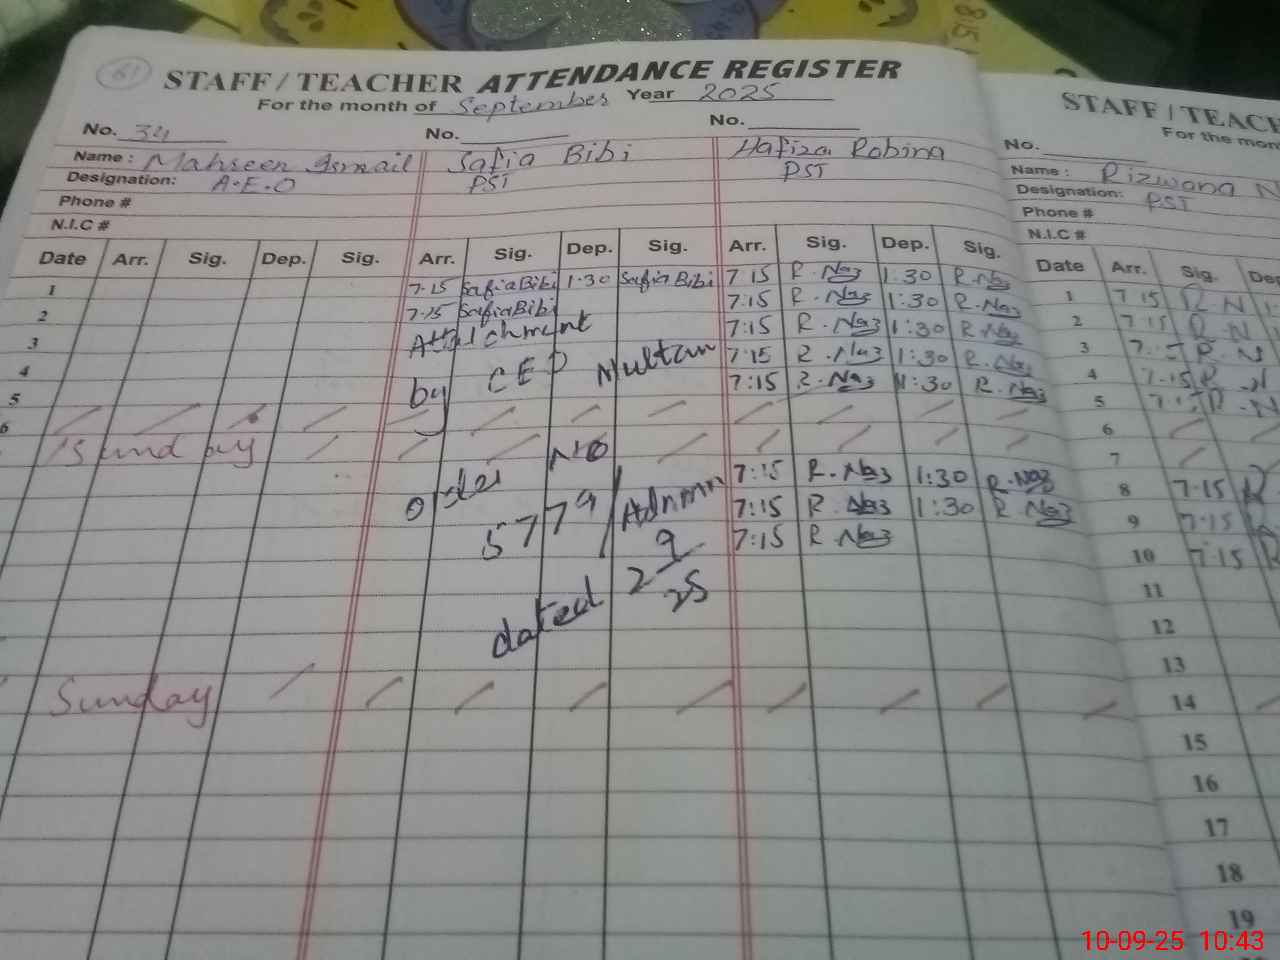 61
STAFF / TEACHER ATTENDANCE REGISTER
For the month of September Year 2025
No. 34 No. No.
Name : Mahreen Ismail Safia Bibi Hafiza Robina
Designation: A.E.O PST PST
Phone #
N.I.C #
Date Arr. Sig. Dep. Sig. Arr. Sig. Dep. Sig. Arr. Sig. Dep. Sig.
1 7.15 Safia Bibi 1.30 Safia Bibi 7.15 R.Naz 1.30 R.Naz
2 7.15 Safia Bibi 7:15 R.Naz 1:30 R.Naz
3 Attachment 7:15 R.Naz 1:30 R.Naz
4 by CEO Multan 7:15 R.Naz 1:30 R.Naz
5 7:15 R.Naz 1:30 R.Naz
6
Sunday
Order No 7:15 R.Naz 1:30 R.Naz
5779/Admn 7:15 R.Naz 1:30 R.Naz
7:15 R.Naz
dated 2 9 25
Sunday
STAFF / TEACH
For the mon
No.
Name : Rizwana N
Designation: PST
Phone #
N.I.C #
Date Arr. Sig. De
1 7 15 R N
2 7:15 R.N
3 7:15 R.N
4 7.15 R
5 7:15 R.N
6
7
8 7.15 R
9 7:15
10 7:15 R
11
12
13
14
15
16
17
18
19
10-09-25 10:43